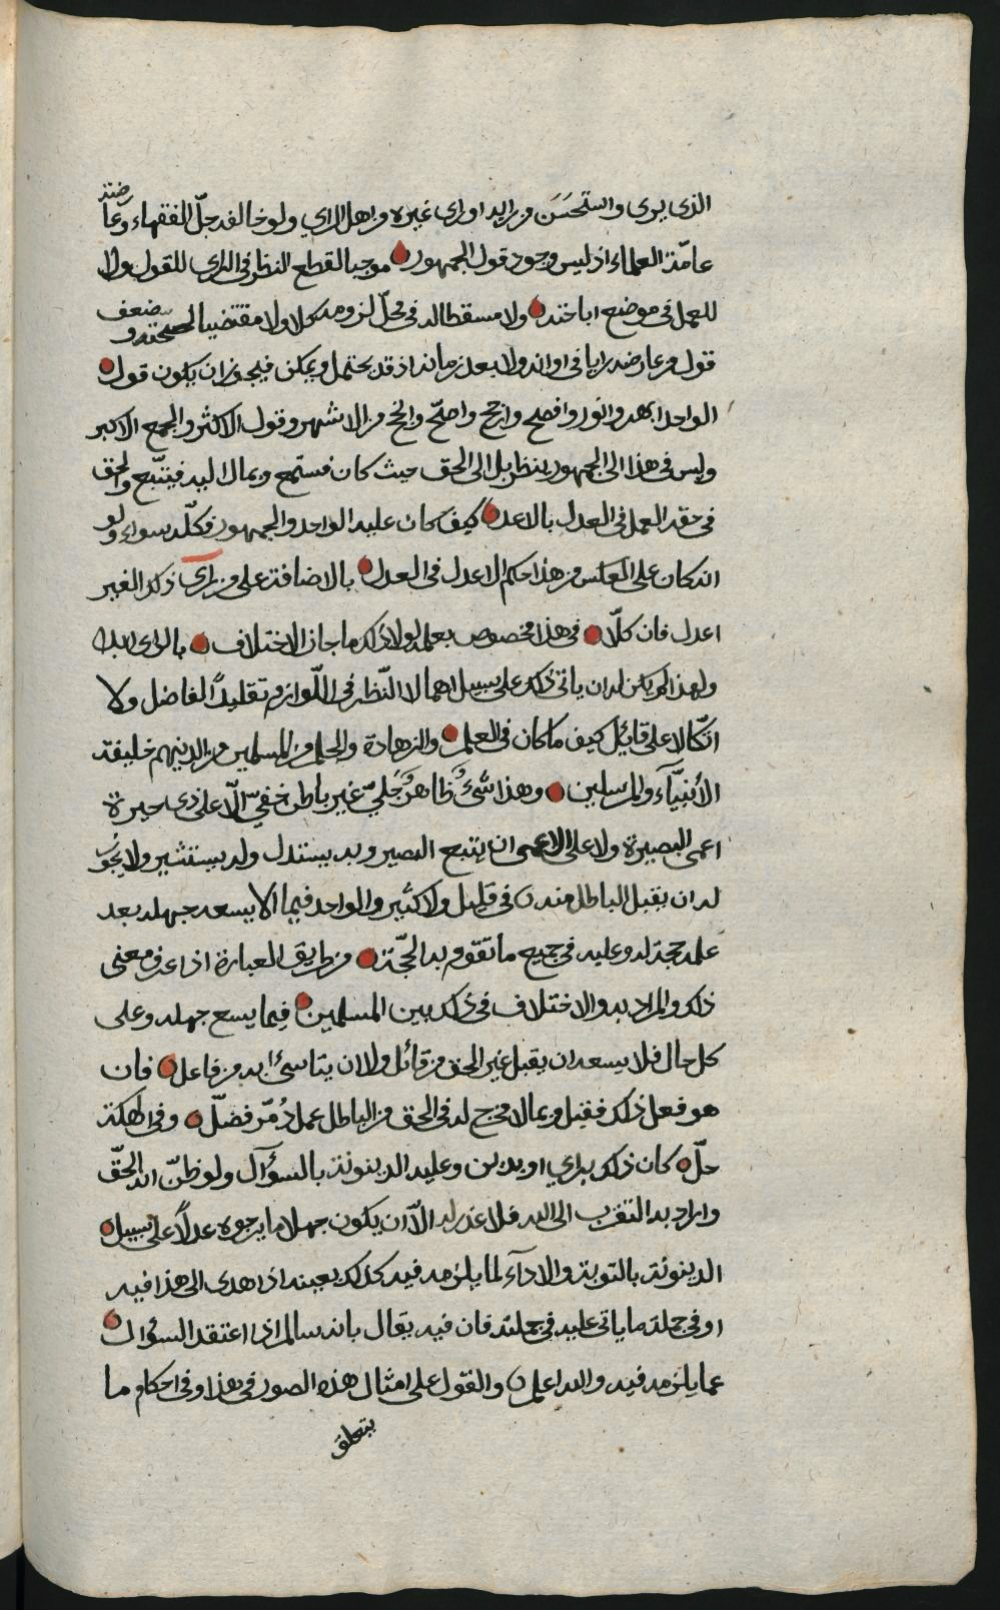 الذى يرى واستحسن من رايه او راى غيره من اهل الراي ولو خالفه جلّ الفقهاء وعارضته
عامّة العلماء اذ ليس وجود قول الجمهور موجبا لقطع النظر فى الراى للقول ولا
للعمل فى موضع اباحته ولا مسقطا له فى محلّ لزومه كلا ولا مقتضيا لصحته وضعف
قول من عارضه رايا فى اوانه ولا بعد زمانه اذ قد يحتمل ويمكن فيجوز ان يكون قول
الواحد ابهر وانور وافصح وارجح واصحّ وانجح من الاشهر وقول الاكثر والجمع الاكبر
وليس فى هذا الى الجمهور ينظر بل الى الحق حيث كان فستمع ويمال اليه فيتّبع ولحق
فى حقه العمل فى العدل بالاعدل كيف كان عليه الواحد والجمهور فكلّه سواء ولو
انه كان على العكس من هذا حكم الاعدل فى العدل بالاضافة على من راى ذلك الغير
اعدل فان كلّا فى هذا مخصوص بعلمه ولولا ذلك ما جاز الاختلاف بالراى ابدا
ولهذا لم يكن له ان ياتى ذلك على سبيل اهمالا النّظر فى اللّوازم وتقليدًا لفاضل ولا
اتّكالا على قائل كيف ما كان فى العلم والزهادة والحلم من المسلمين من الذينهم خليفة
الأنبيآء والمرسلين وهذا شىءٌ ظاهرٌ جَليّ غير باطن خفيّ الّا على ذى حيرة
اعمى البصيرة ولا على الاعمى ان يتبع البصير وبه يستدل وله يستشير ولا يجوز
له ان يقبل الباطل منه فى قليل ولا كثير والواحد فيما لا يسعه جهله بعد
علمه حجة له وعليه فى جميع ما تقوم به الحجّة من طريق العبارة اذا عرف معنى
ذلك والمراد به والاختلاف فى ذلك بين المسلمين فيما يسع جهله وعلى
كل حال فلا يسعه ان يقبل غير الحق من قائل ولا ان يتاسىٰ به من فاعل فان
هو فعل ذلك فقبل وعمالا مخرج له فى الحق من الباطل عمل دُمّر فضلّ وفى الهلكة
حلّ كان ذلك براي او بدين وعليه الدينونة بالسؤآل ولو ظنّ انه الحقّ
واراد به التقرب الى الله فلا عذر له الاّ ان يكون جهلا ما يرجوه عدلاً على سبيل
الدينونة بالتوبة والادآء لما يلزمه فيه كذلك بعينه اذا هدى الى هذا فيه
او فى جملة ما ياتى عليه فى جملته فان فيه يقال بانه سالم اذا اعتقد السؤال
عما يلزمه فيه والله اعلم والقول على امثال هذه الصور فى هذا وفى احكام ما
يتعلق